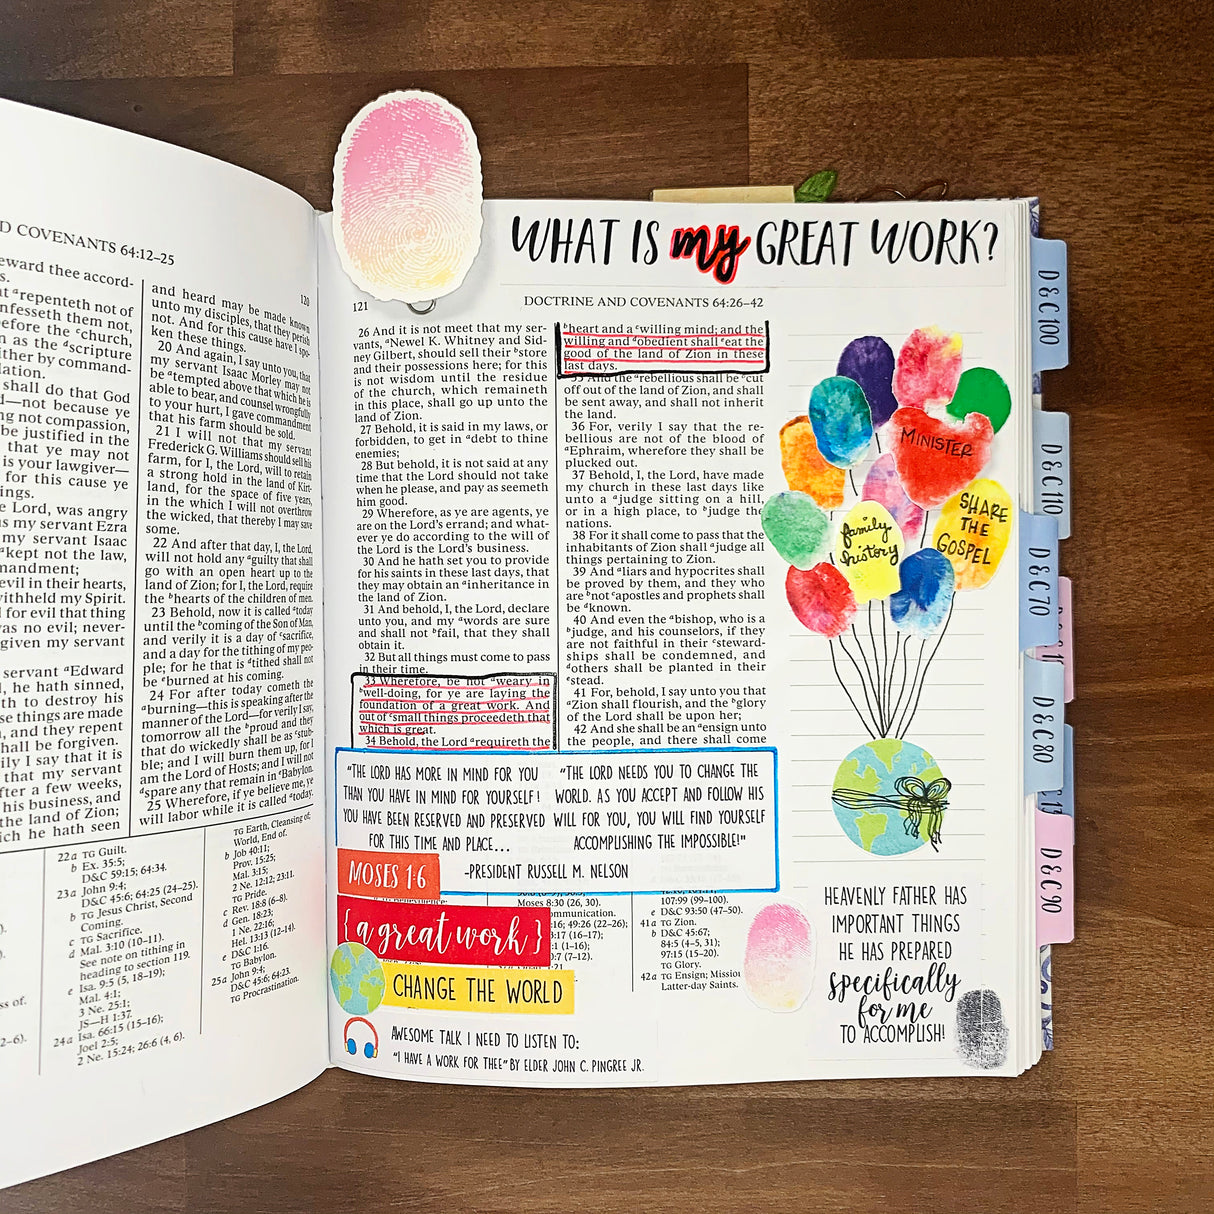 D COVENANTS 64:12–25
eward thee accord-
s.
at ᵃrepenteth not of
nfesseth them not,
efore the ᶜchurch,
n as the ᵈscripture
ither by command-
lation.
shall do that God
d—not because ye
ng not compassion,
be justified in the
that ye may not
is your lawgiver—
for this cause ye
ings.
e Lord, was angry
us my servant Ezra
my servant Isaac
ᵃkept not the law,
mandment;
evil in their hearts,
withheld my Spirit.
for evil that thing
was no evil; never-
given my servant
servant ᵃEdward
, he hath sinned,
th to destroy his
se things are made
, and they repent
hall be forgiven.
ily I say that it is
that my servant
fter a few weeks,
his business, and
the land of Zion;
ich he hath seen
120
and heard may be made known
unto my disciples, that they perish
not. And for this cause have I spo-
ken these things.
20 And again, I say unto you, that
my servant Isaac Morley may not
be ᵃtempted above that which he is
able to bear, and counsel wrongfully
to your hurt, I gave commandment
that his farm should be sold.
21 I will not that my servant
Frederick G. Williams should sell his
farm, for I, the Lord, will to retain
a strong hold in the land of Kirt-
land, for the space of five years,
in the which I will not overthrow
the wicked, that thereby I may save
some.
22 And after that day, I, the Lord,
will not hold any ᵃguilty that shall
go with an open heart up to the
land of Zion; for I, the Lord, require
the ᵇhearts of the children of men.
23 Behold, now it is called ᵃtoday
until the ᵇcoming of the Son of Man,
and verily it is a day of ᶜsacrifice,
and a day for the tithing of my peo-
ple; for he that is ᵈtithed shall not
be ᵉburned at his coming.
24 For after today cometh the
ᵃburning—this is speaking after the
manner of the Lord—for verily I say,
tomorrow all the ᵇproud and they
that do wickedly shall be as ᶜstub-
ble; and I will burn them up, for I
am the Lord of Hosts; and I will not
ᵈspare any that remain in ᵉBabylon.
25 Wherefore, if ye believe me, ye
will labor while it is called ᵃtoday.
2–6).
22a TG Guilt.
b Ex. 35:5;
D&C 59:15; 64:34.
23a John 9:4;
D&C 45:6; 64:25 (24–25).
b TG Jesus Christ, Second
Coming.
c TG Sacrifice.
d Mal. 3:10 (10–11).
See note on tithing in
heading to section 119.
e Isa. 9:5 (5, 18–19);
Mal. 4:1;
3 Ne. 25:1;
JS—H 1:37.
24a Isa. 66:15 (15–16);
Joel 2:5;
2 Ne. 15:24; 26:6 (4, 6).
TG Earth, Cleansing of;
World, End of.
b Job 40:11;
Prov. 15:25;
Mal. 3:15;
2 Ne. 12:12; 23:11.
TG Pride.
c Rev. 18:8 (6–8).
d Gen. 18:23;
1 Ne. 22:16;
Hel. 13:13 (12–14).
e D&C 1:16.
TG Babylon.
25a John 9:4;
D&C 45:6; 64:23.
TG Procrastination.
WHAT IS my GREAT WORK?
121
DOCTRINE AND COVENANTS 64:26–42
26 And it is not meet that my ser-
vants, ᵃNewel K. Whitney and Sid-
ney Gilbert, should sell their ᵇstore
and their possessions here; for this
is not wisdom until the residue
of the church, which remaineth
in this place, shall go up unto the
land of Zion.
27 Behold, it is said in my laws, or
forbidden, to get in ᵃdebt to thine
enemies;
28 But behold, it is not said at any
time that the Lord should not take
when he please, and pay as seemeth
him good.
29 Wherefore, as ye are agents, ye
are on the Lord's errand; and what-
ever ye do according to the will of
the Lord is the Lord's business.
30 And he hath set you to provide
for his saints in these last days, that
they may obtain an ᵃinheritance in
the land of Zion.
31 And behold, I, the Lord, declare
unto you, and my ᵃwords are sure
and shall not ᵇfail, that they shall
obtain it.
32 But all things must come to pass
in their time.
33 Wherefore, be not ᵃweary in
ᵇwell-doing, for ye are laying the
foundation of a great work. And
out of ᶜsmall things proceedeth that
which is great.
34 Behold, the Lord ᵃrequireth the
ᵇheart and a ᶜwilling mind; and the
willing and ᵈobedient shall ᵉeat the
good of the land of Zion in these
last days.
35 And the ᵃrebellious shall be ᵇcut
off out of the land of Zion, and shall
be sent away, and shall not inherit
the land.
36 For, verily I say that the re-
bellious are not of the blood of
ᵃEphraim, wherefore they shall be
plucked out.
37 Behold, I, the Lord, have made
my church in these last days like
unto a ᵃjudge sitting on a hill,
or in a high place, to ᵇjudge the
nations.
38 For it shall come to pass that the
inhabitants of Zion shall ᵃjudge all
things pertaining to Zion.
39 And ᵃliars and hypocrites shall
be proved by them, and they who
are ᵇnot ᶜapostles and prophets shall
be ᵈknown.
40 And even the ᵃbishop, who is a
ᵇjudge, and his counselors, if they
are not faithful in their ᶜsteward-
ships shall be condemned, and
ᵈothers shall be planted in their
ᵉstead.
41 For, behold, I say unto you that
ᵃZion shall flourish, and the ᵇglory
of the Lord shall be upon her;
42 And she shall be an ᵃensign unto
the people, and there shall come
"THE LORD HAS MORE IN MIND FOR YOU
THAN YOU HAVE IN MIND FOR YOURSELF!
YOU HAVE BEEN RESERVED AND PRESERVED
FOR THIS TIME AND PLACE...
"THE LORD NEEDS YOU TO CHANGE THE
WORLD. AS YOU ACCEPT AND FOLLOW HIS
WILL FOR YOU, YOU WILL FIND YOURSELF
ACCOMPLISHING THE IMPOSSIBLE!"
-PRESIDENT RUSSELL M. NELSON
MOSES 1:6
{a great work}
CHANGE THE WORLD
AWESOME TALK I NEED TO LISTEN TO:
"I HAVE A WORK FOR THEE" BY ELDER JOHN C. PINGREE JR.
Moses 8:30 (26, 30).
ommunication.
:16; 49:26 (22–26);
3:17 (16–17);
:1 (1–16);
0:7 (7–12).
107:99 (99–100).
e D&C 93:50 (47–50).
41a TG Zion.
b D&C 45:67;
84:5 (4–5, 31);
97:15 (15–20).
TG Glory.
42a TG Ensign; Missio
Latter-day Saints.
MINISTER
SHARE
THE
GOSPEL
family
history
HEAVENLY FATHER HAS
IMPORTANT THINGS
HE HAS PREPARED
specifically
for me
TO ACCOMPLISH!
D&C 100
D&C 110
D&C 70
D&C 80
D&C 90